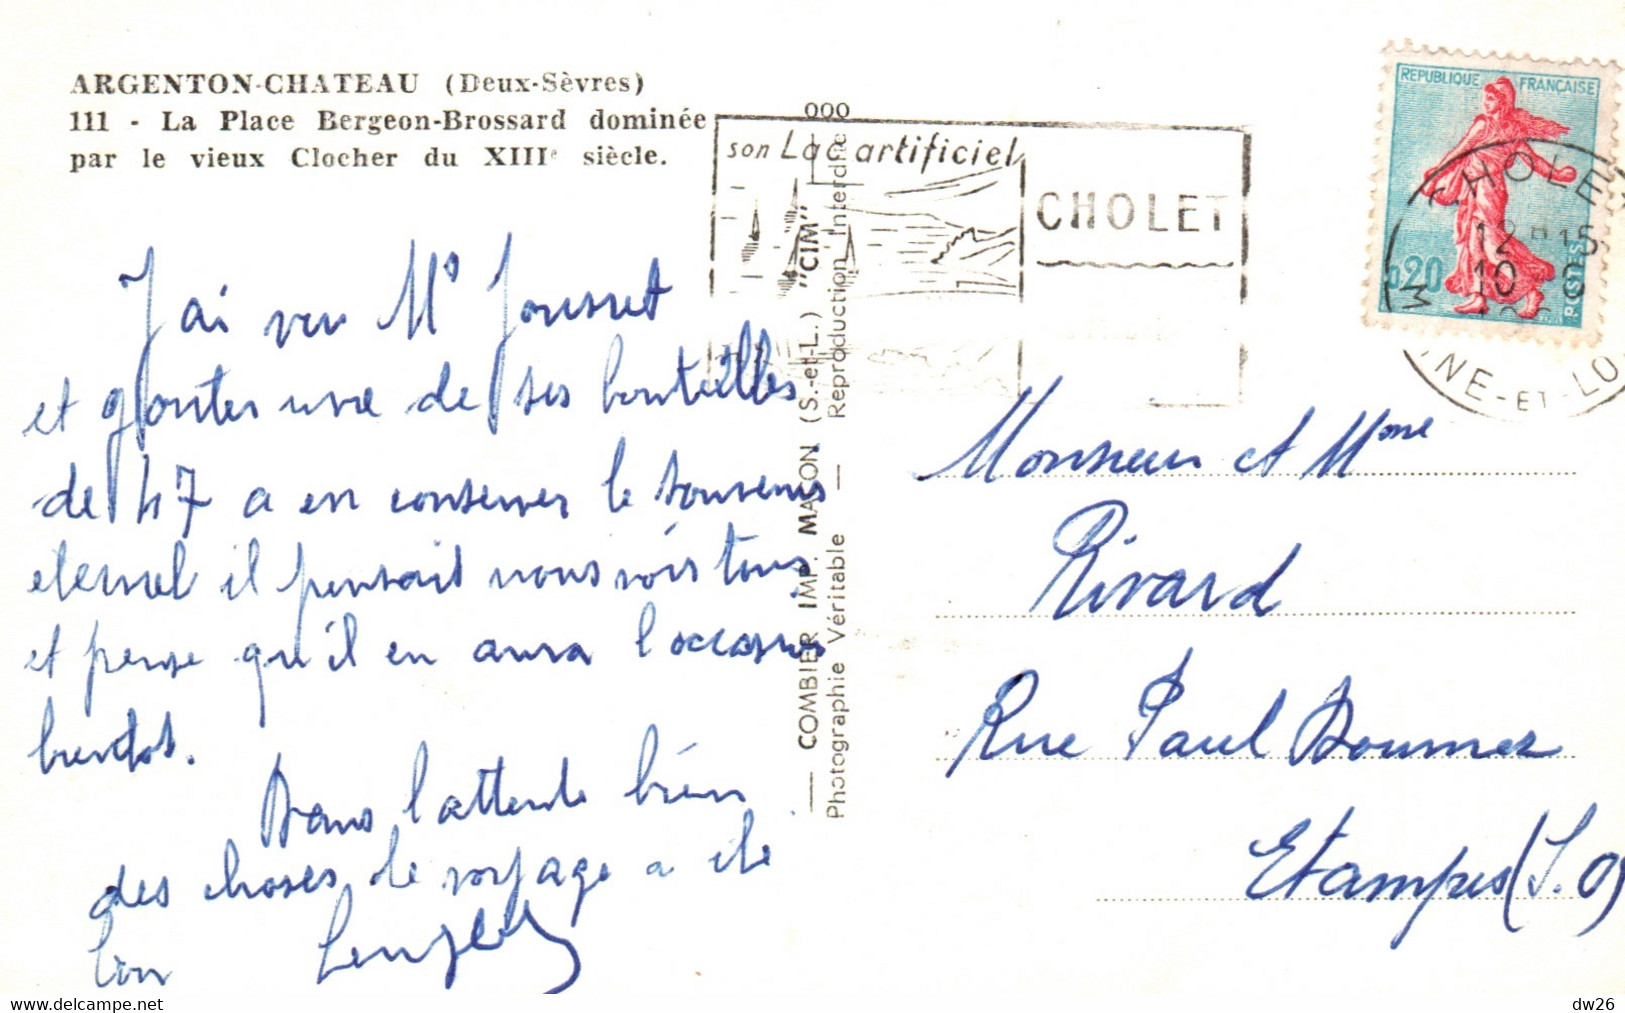 ARGENTON-CHATEAU (Deux-Sèvres)
111 - La Place Bergeon-Brossard dominée
par le vieux Clocher du XIIIe siècle.
J'ai vu Mr Jousset
et goûter une de ses bouteilles
de 47 a en conserver le souvenir
eternel il pensait nous voir tous
et pense qu'il en aura l'occasion
bientot.
Dans l'attente bien
des choses le voyage a été
bon
000
son Lac artificiel
CHOLET
— COMBIER IMP. MACON (S.-et-L.) "CIM"
Photographie Véritable — Reproduction Interdite
REPUBLIQUE FRANÇAISE
0,20
POSTES
CHOLET
12 H 15
10
NE-ET-LO
Monsieur et Mme
Rivard
Rue Paul Doumer
Etampes (S.O)
www.delcampe.net
dw26